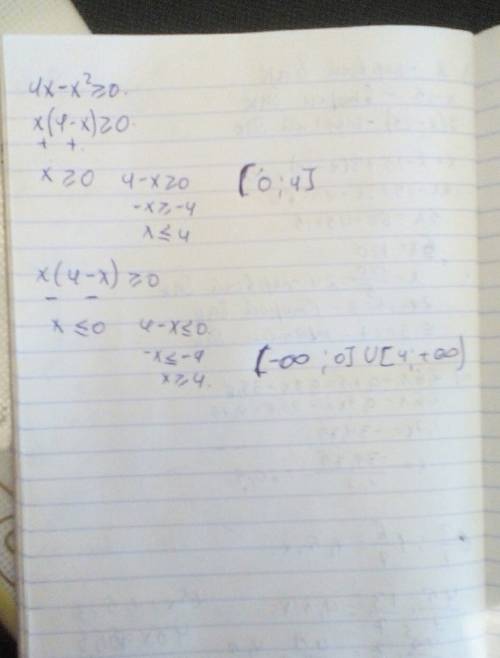 4x-x²≥0.
x(4-x)≥0.
+ +.
x≥0 4-x≥0 [0;4]
-x≥-4
x≤4
x(4-x)≥0
- -
x≤0 4-x≤0.
-x≤-4 (-∞;0]U[4;+∞)
x≥4.